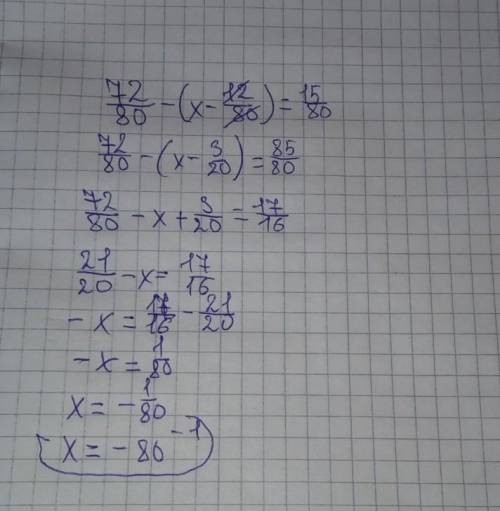 72/80 - (x - 12/80) = 15/80
72/80 - (x - 3/20) = 85/80
72/80 - x + 3/20 = 17/16
21/20 - x = 17/16
- x = 17/16 - 21/20
- x = 1/80
x = - 1/80
x = - 80⁻¹